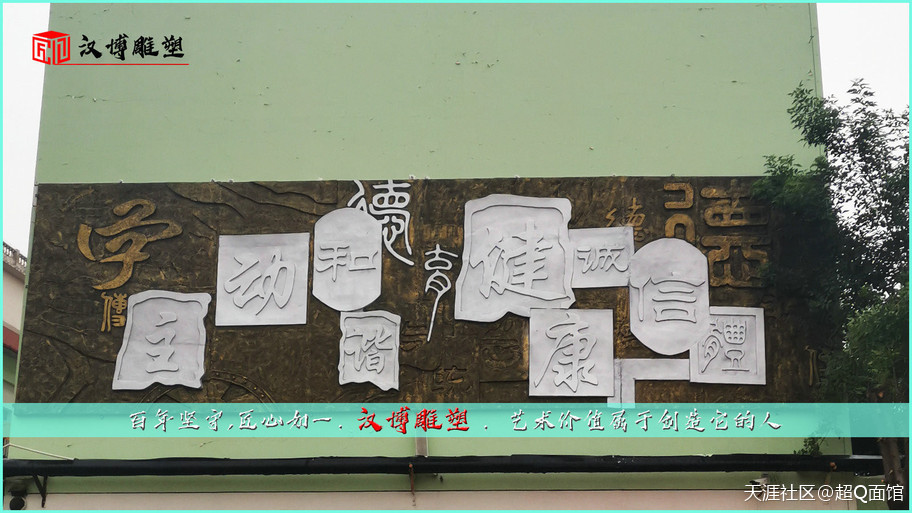 汉博雕塑
德
学
动
和
育
健
诚
德
信
傳
主
谐
康
體
百年坚守,匠心如一. 汉博雕塑 . 艺术价值属于创造它的人
天涯社区@超Q面馆